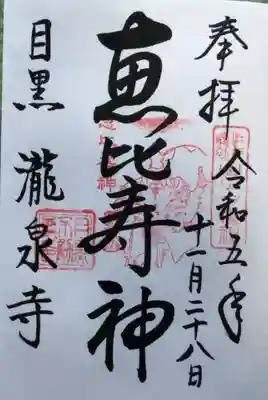 奉拝 令和五年
十一月二十八日
恵比寿神
目黒 瀧泉寺